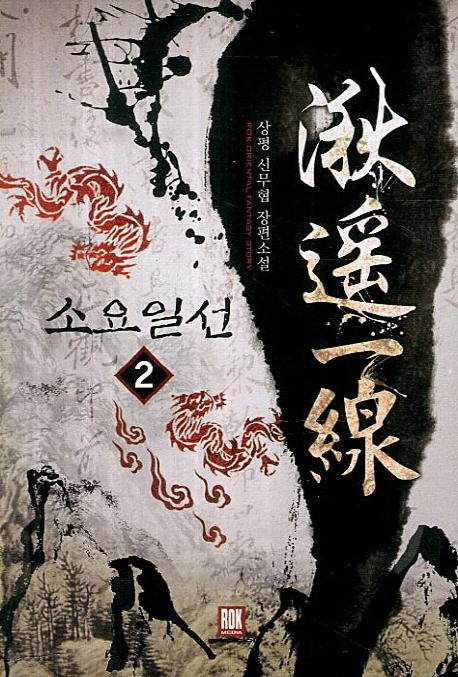 湫遥一線
상평 신무협 장편소설
ROK ORIENTAL FANTASY STORY
소요일선
2
ROK
MEDIA